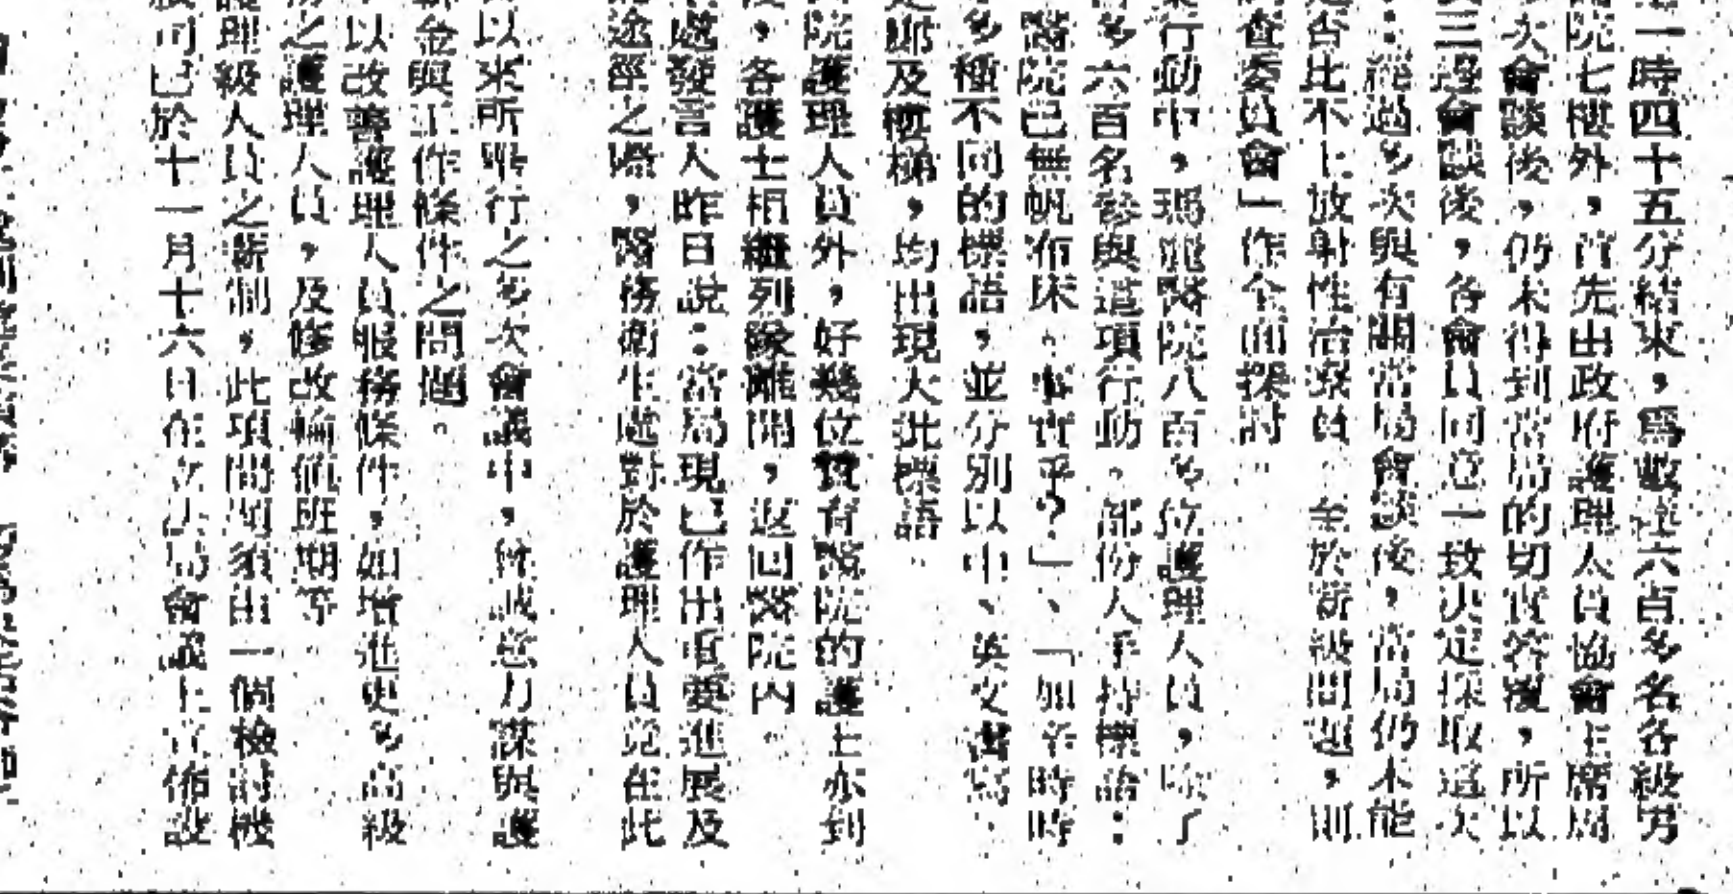 一時四十五分結束，為數達六百多名各級男
院七樓外，首先由政府護理人員協會主席周
次會談後，仍未得到當局的切實答覆，所以
三過會談後，各會員同意一致決定採取這次
：經過多次與有關當局會談後，當局仍未能
是否比不上放射性治療員。至於薪級問題，則
查委員會」作全面探討。
行動中，瑪麗醫院八百多位護理人員，除了
多六百名參與這項行動。部份人手持標語：
醫院已無帆布床。事實乎？」、「如辛時時
多種不同的標語，並分別以中、英文書寫、
及樓梯，均出現大批標語。
院護理人員外，好幾位贊育醫院的護士亦到
，各護士相繼列隊離開，返回醫院內。
處發言人昨日說：當局現已作出重要進展及
途徑之際，醫務衛生處對於護理人員竟在此
以來所舉行之多次會議中，曾誠懇力謀與護
薪金與工作條件之問題。
以改善護理人員服務條件，如增進更多高級
之護理人員，及修改輪值班期等
護理級人員之薪制，此項問題須由一個檢討機
司已於十一月十六日在立法局會議上宣佈設